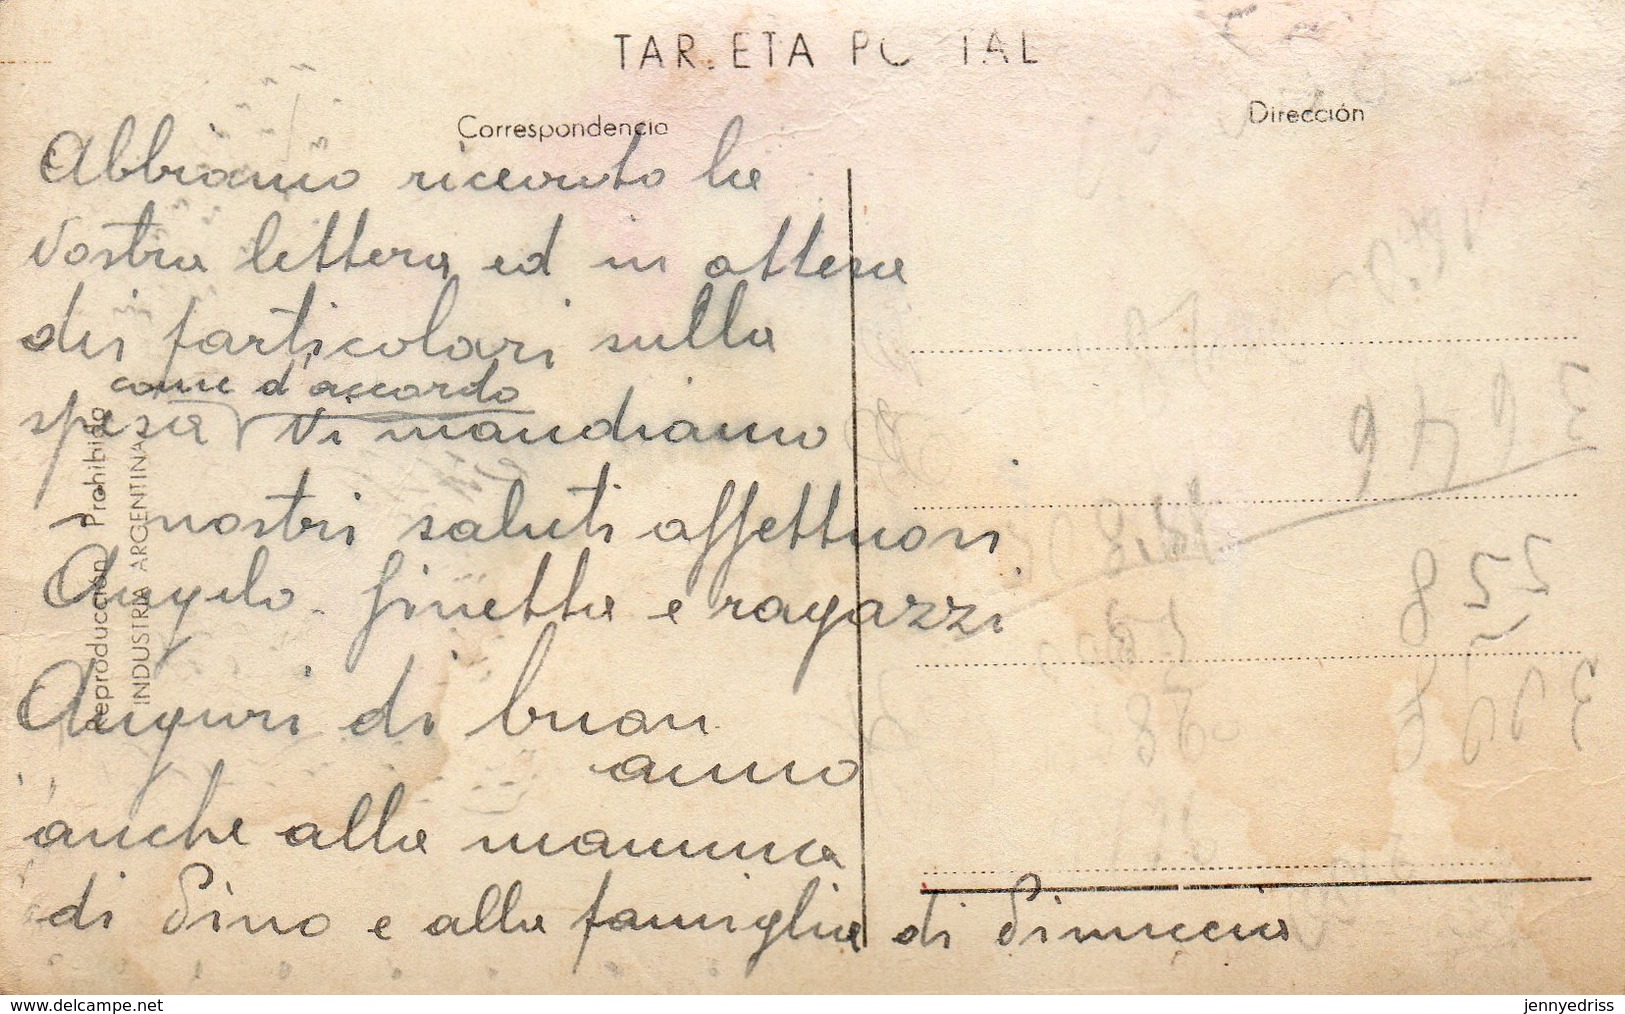 TARJETA POSTAL
Correspondencia
Dirección
Abbiamo ricevuto la
vostra lettera, ed in attesa
dei particolari sulla
come d'accordo
spesa vi mandiamo
i nostri saluti affettuosi
Angelo - Ginetta e ragazzi
Auguri di buon
anno
anche alla mamma
di Pino e alla famiglia di Pinuccia
Reproducción Prohibida
INDUSTRIA ARGENTINA
558
www.delcampe.net
jennyedriss